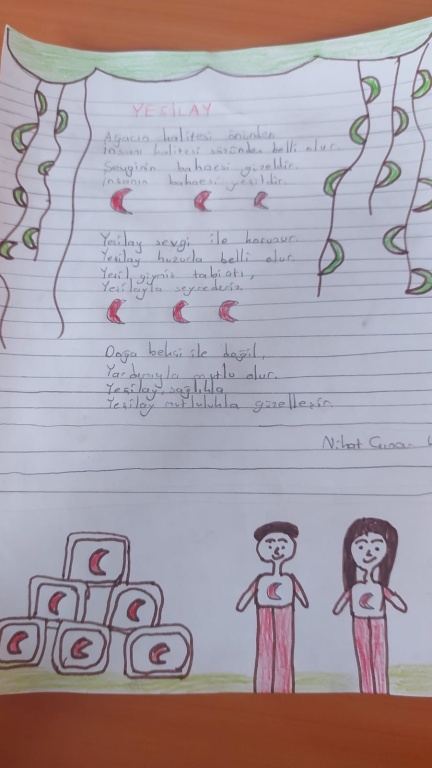 YEŞİLAY
Ağacın kalitesi önünden
İnsan kalitesi sözünden belli olur.
Sevginin bahçesi güzeldir.
İnsanın bahçesi yeşildir.
Yeşilay sevgi ile korunur.
Yeşilay huzurla belli olur.
Yeşil giymiş tabiatı,
Yeşilayla seyrederiz.
Doğa bekçi ile değil,
Yardımıyla mutlu olur.
Yeşilay, sağlıkla
Yeşilay mutlulukla güzelleşir.
Nihat